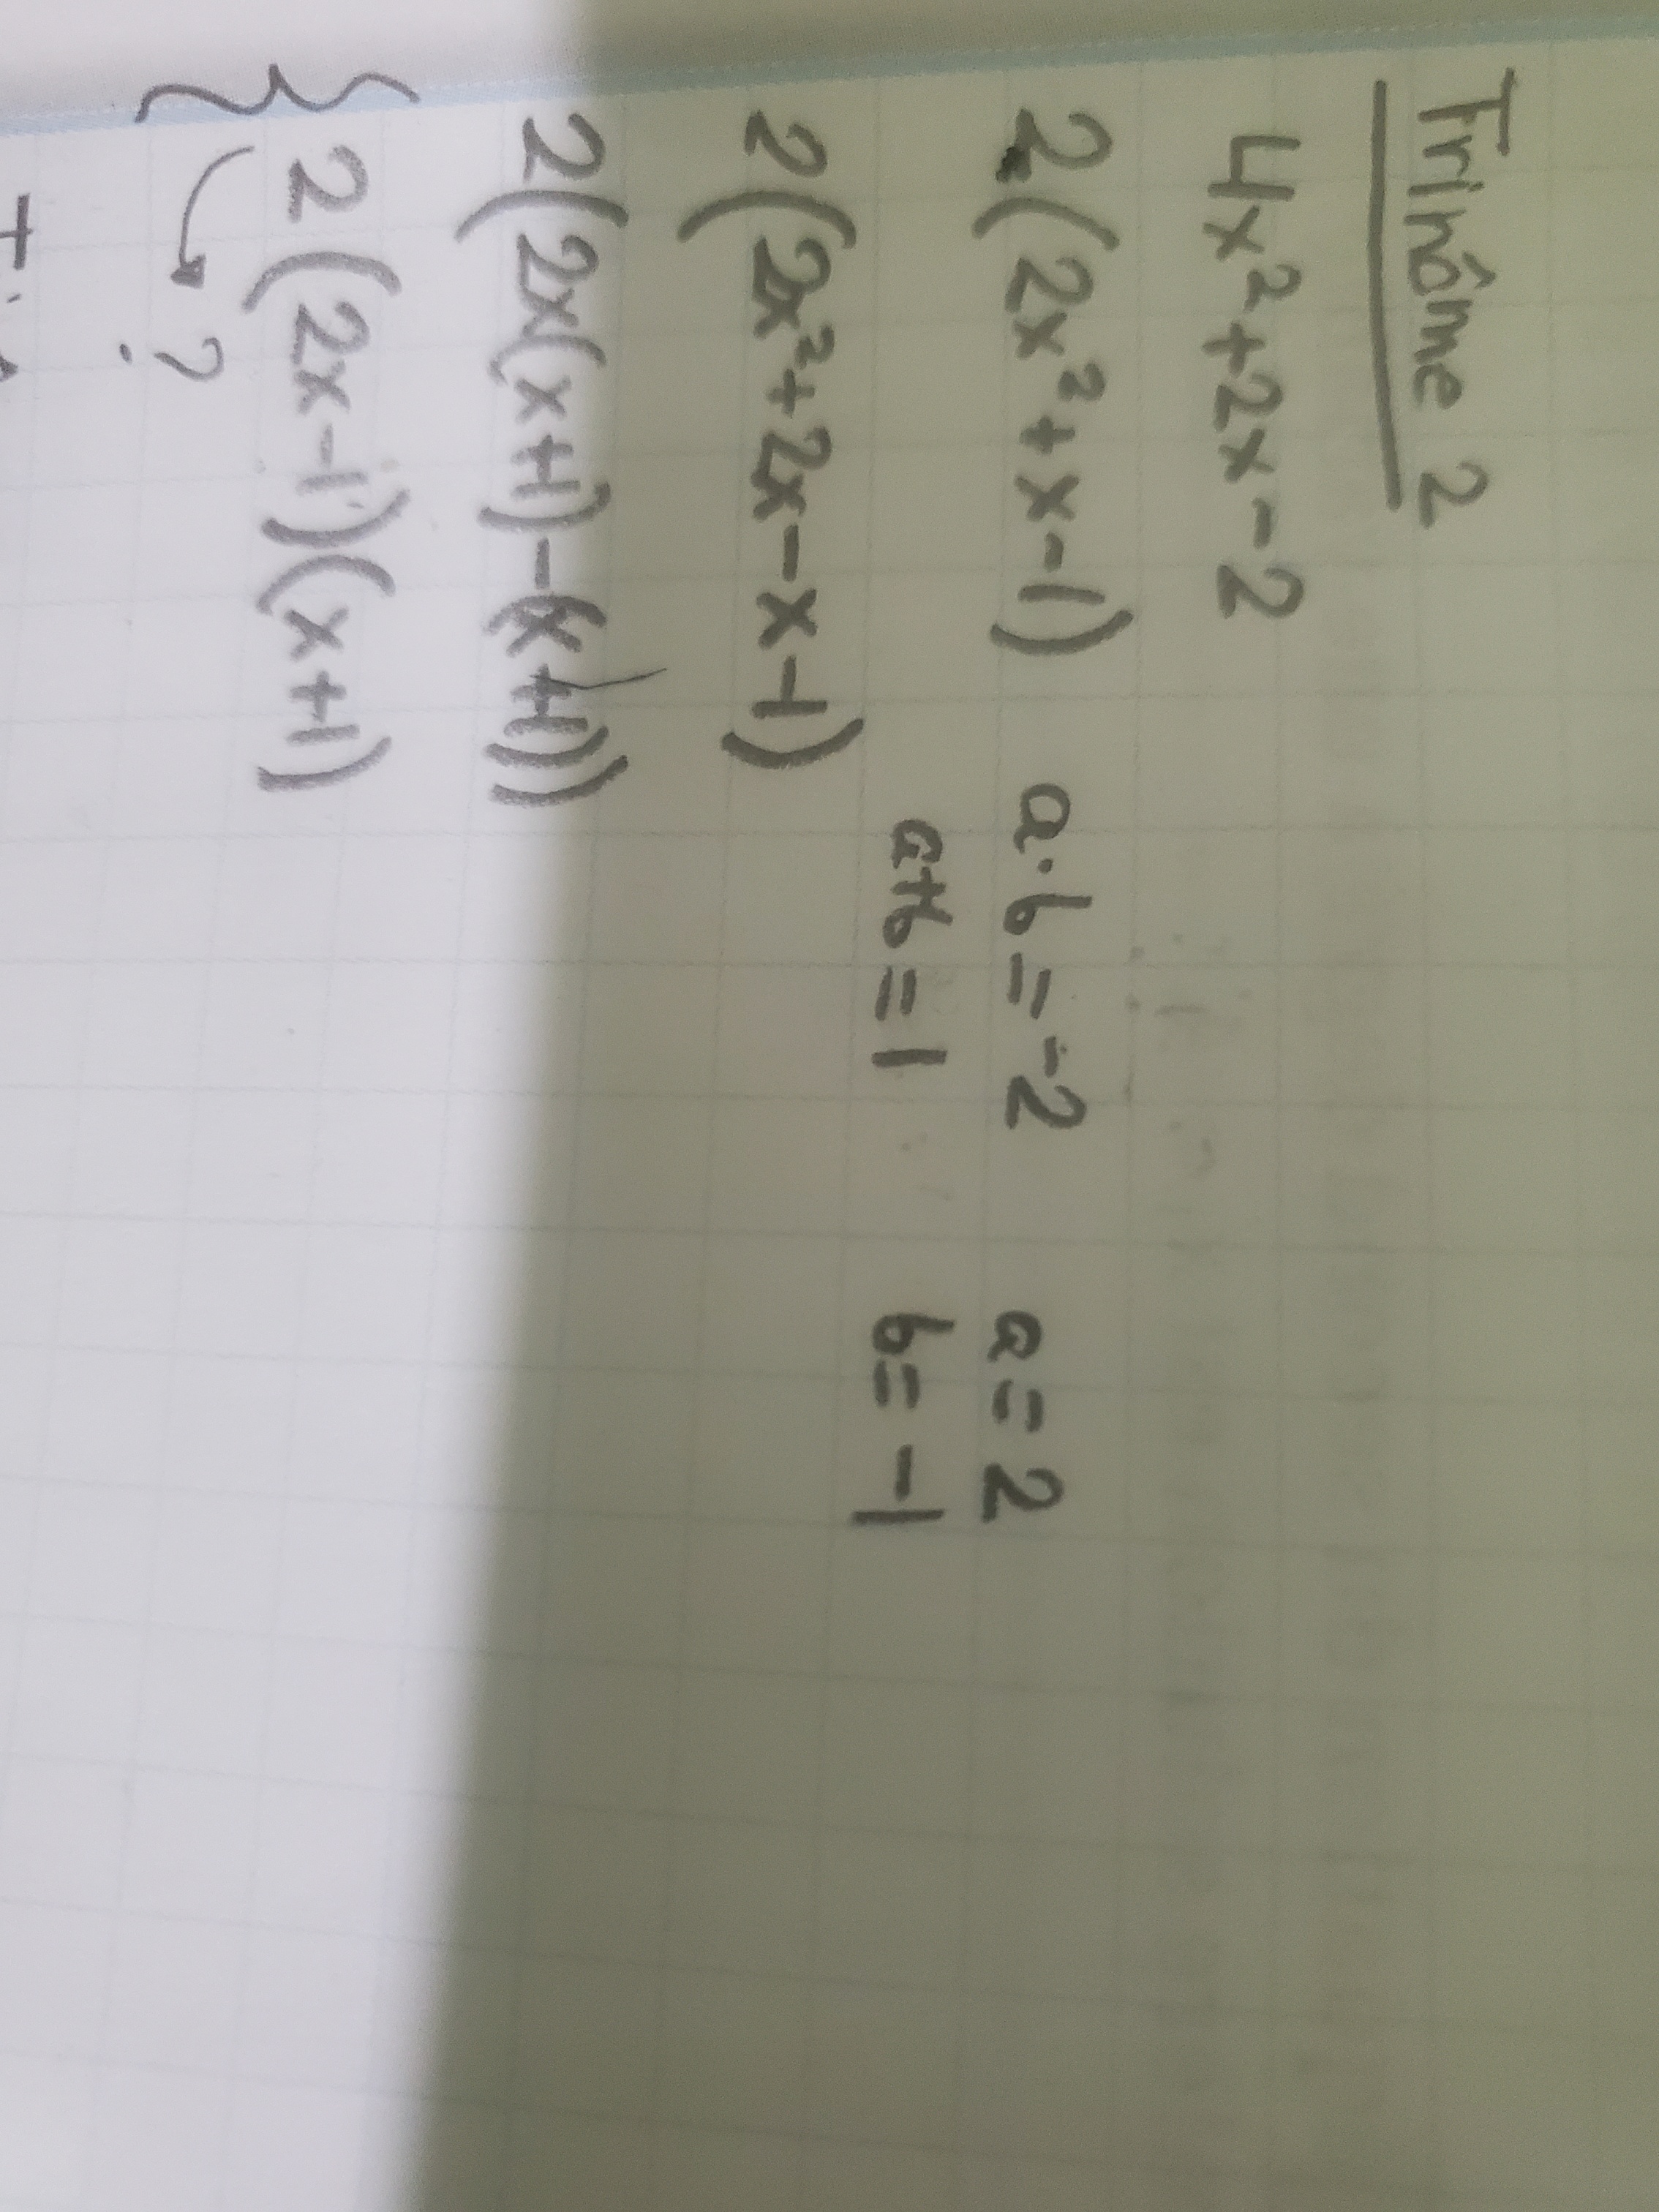 Trinôme 2
4x²+2x-2
2(2x²+x-1) a·b=-2 a=2
a+b=1 b=-1
2(2x²+2x-x-1)
2(2x(x+1)-(x+1))
{ 2(2x-1)(x+1)
?